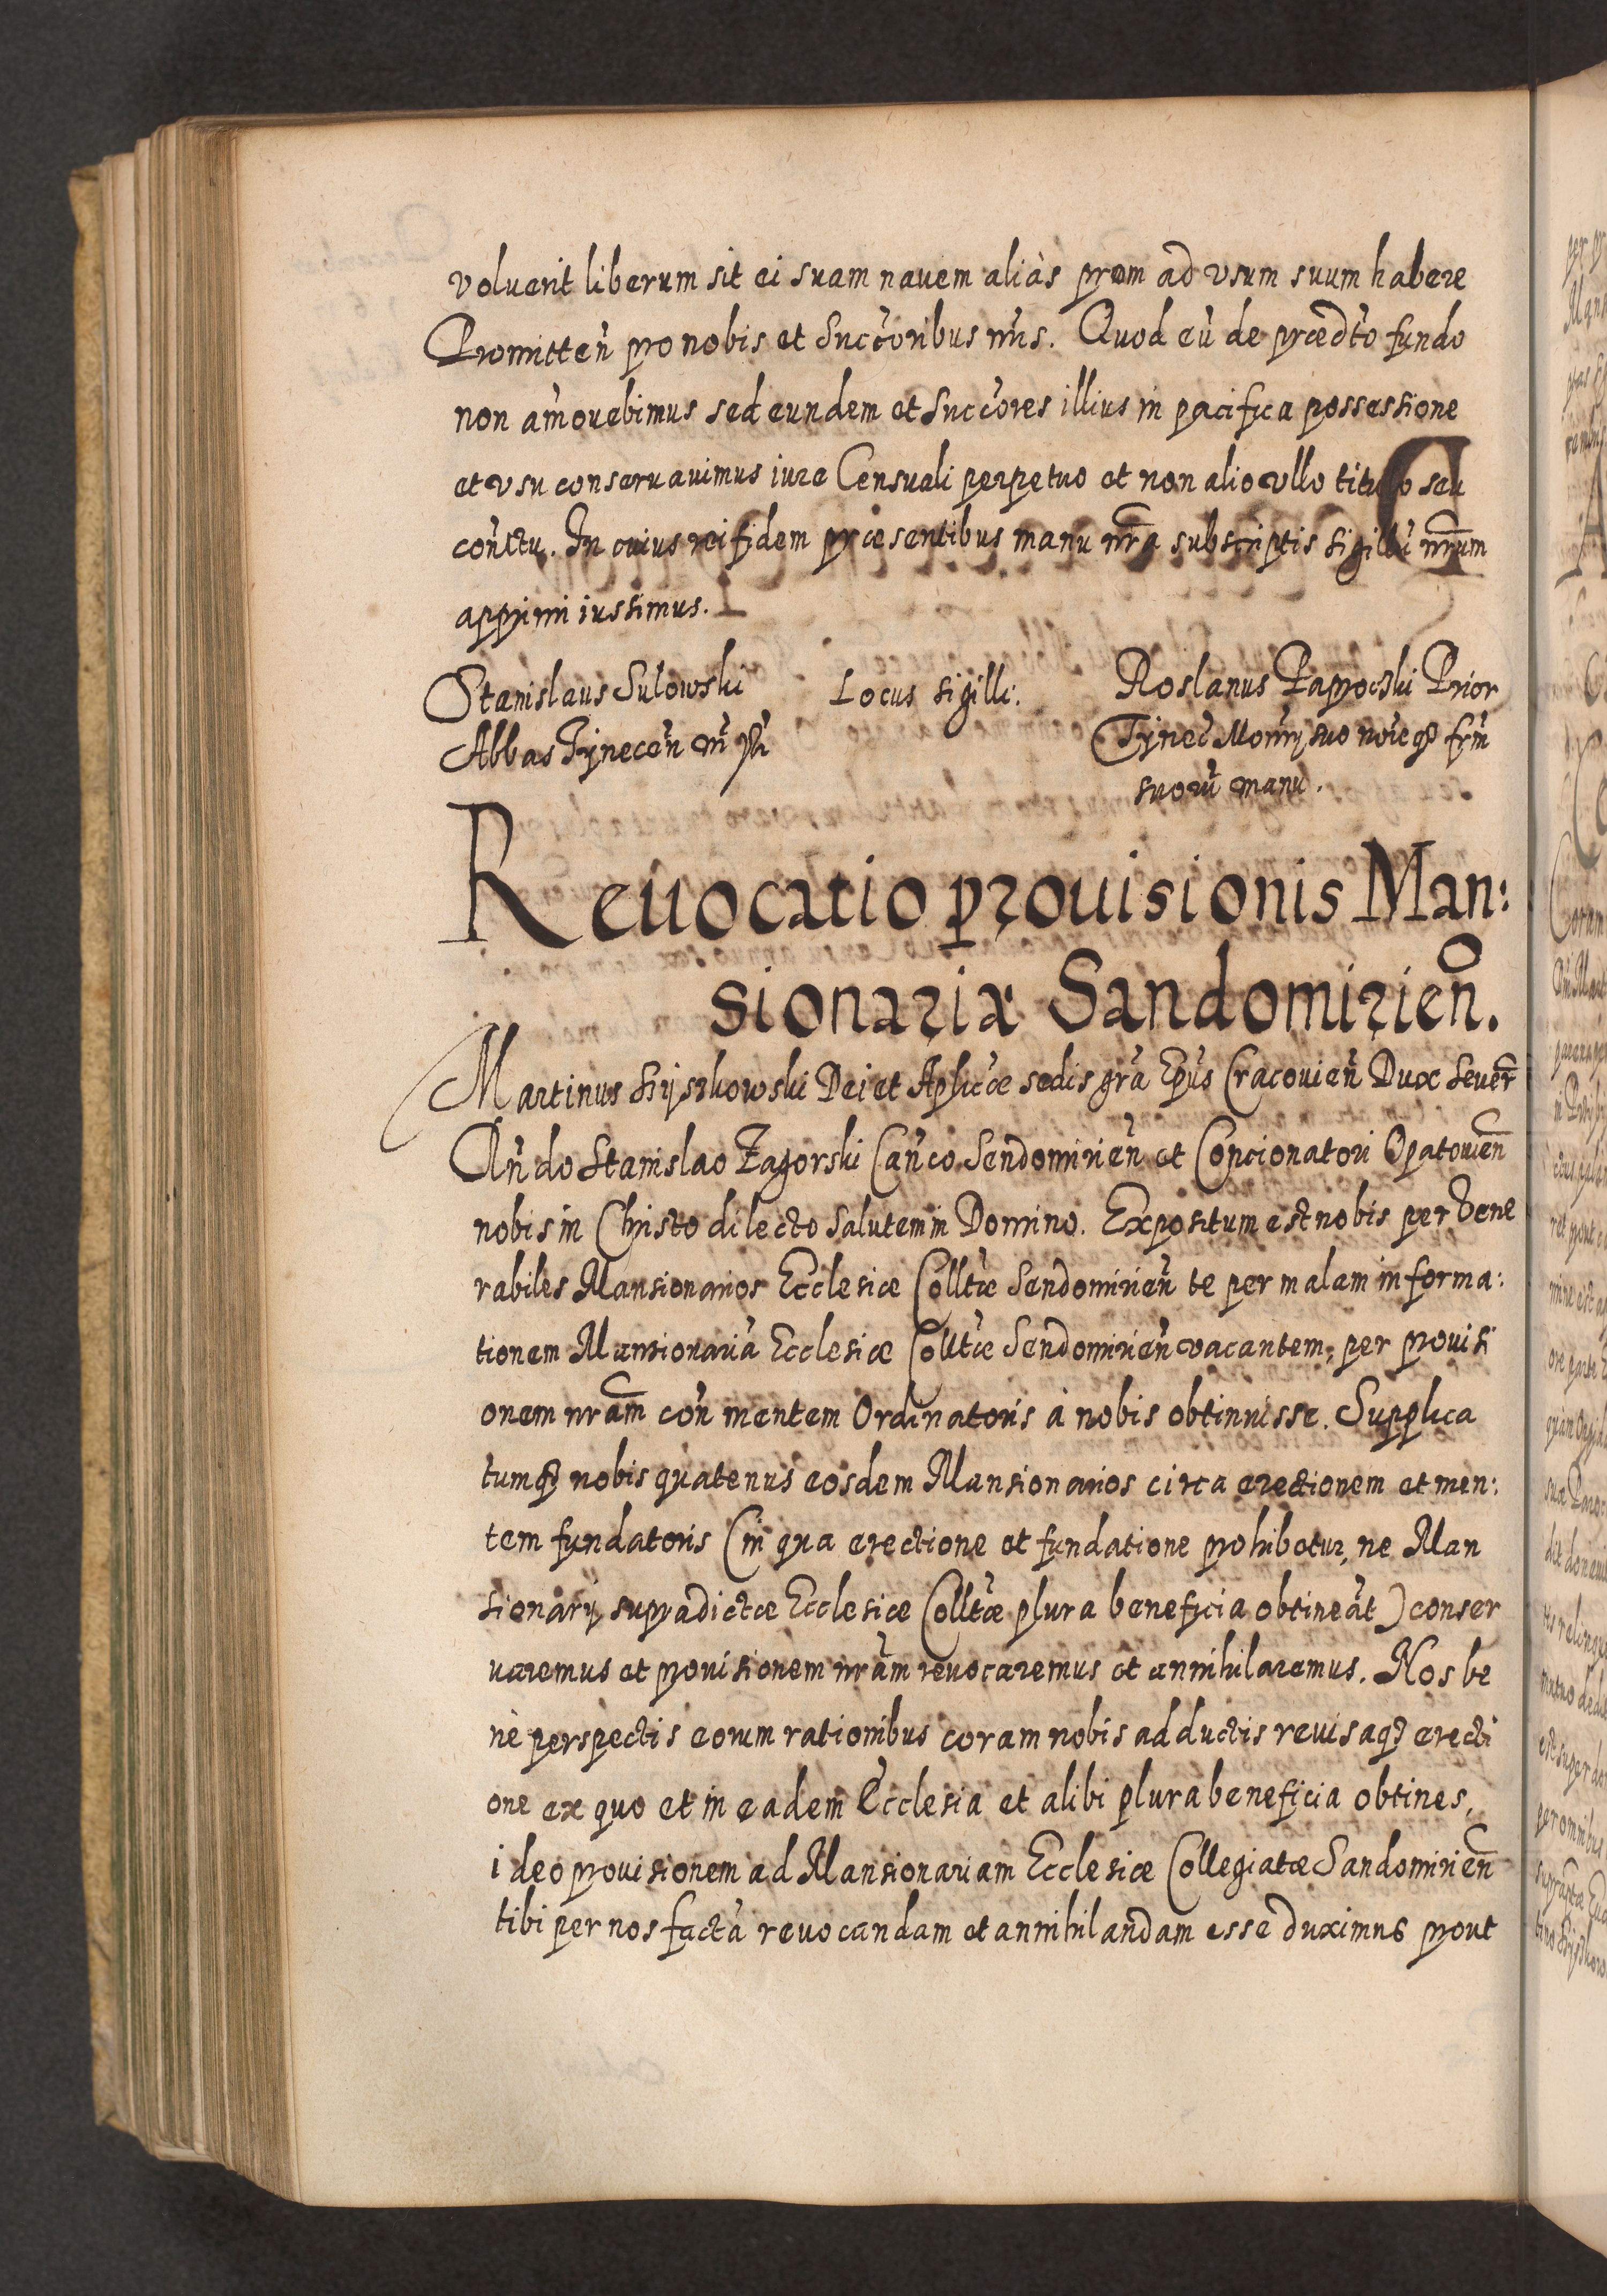 voluerit liberum sit ei suam nauem aliàs prom ad vsum suum habere
Promitteñ pro nobis et Succ̃oribus nr̃is. Quod eũ de prædt̃o fundo
non am̃ouebimus sed eundem et Succ̃ores illius in pacifica possessione
et vsu conseruauimus iure Censuali perpetuo et non alio vllo titulo seu
coñctu. In cuius rei fidem præsentibus manu nr̃a subscriptis sigillũ nr̃um
apprimi iussimus.
Stanislaus Sulowski Locus sigilli: Roslanus Paprocski Prior
Abbas Tÿneceñ m̃ pp̃ Tÿnec̃ Monrÿ suo noĩe qz fr̃m
suorũ manu.
Reuocatio prouisionis Man:
sionariæ Sandomirieñ.
Martinus Szÿszkowski Dei et Aplicæ sedis gr̃a Epũs Cracouieñ Dux Seuer̃
Añdo Stanislao Zagorski Cañco Sendomirieñ et Concionatori Opatouieñ
nobis in Christo dilecto salutem in Domino. Expositum est nobis per Vene
rabiles Mansionarios Ecclesiæ Colltæ Sendomirieñ te per malam informa:
tionem Mansionariã Ecclesiæ Colltæ Sendomirieñ vacantem, per prouisi
onem nr̃am con̄ mentem Ordinatoris à nobis obtinuisse. Supplica
tumqz nobis quatenus eosdem Mansionarios circa erectionem et men:
tem fundatoris (in qua erectione et fundatione prohibetur, ne Man
sionarÿ supradictæ Ecclesiæ Colltæ plura beneficia obtineãt) conser
uaremus et prouisionem nr̃am reuocaremus et annihilaremus. Nos be
nè perspectis eorum rationibus coram nobis adductis reuisaqz erecti
one ex quo et in eadem Ecclesia et alibi plura beneficia obtines,
ideo prouisionem ad Mansionariam Ecclesiæ Collegiatæ Sandomirieñ
tibi per nos factã reuocandam et annihilandam esse duximus prout